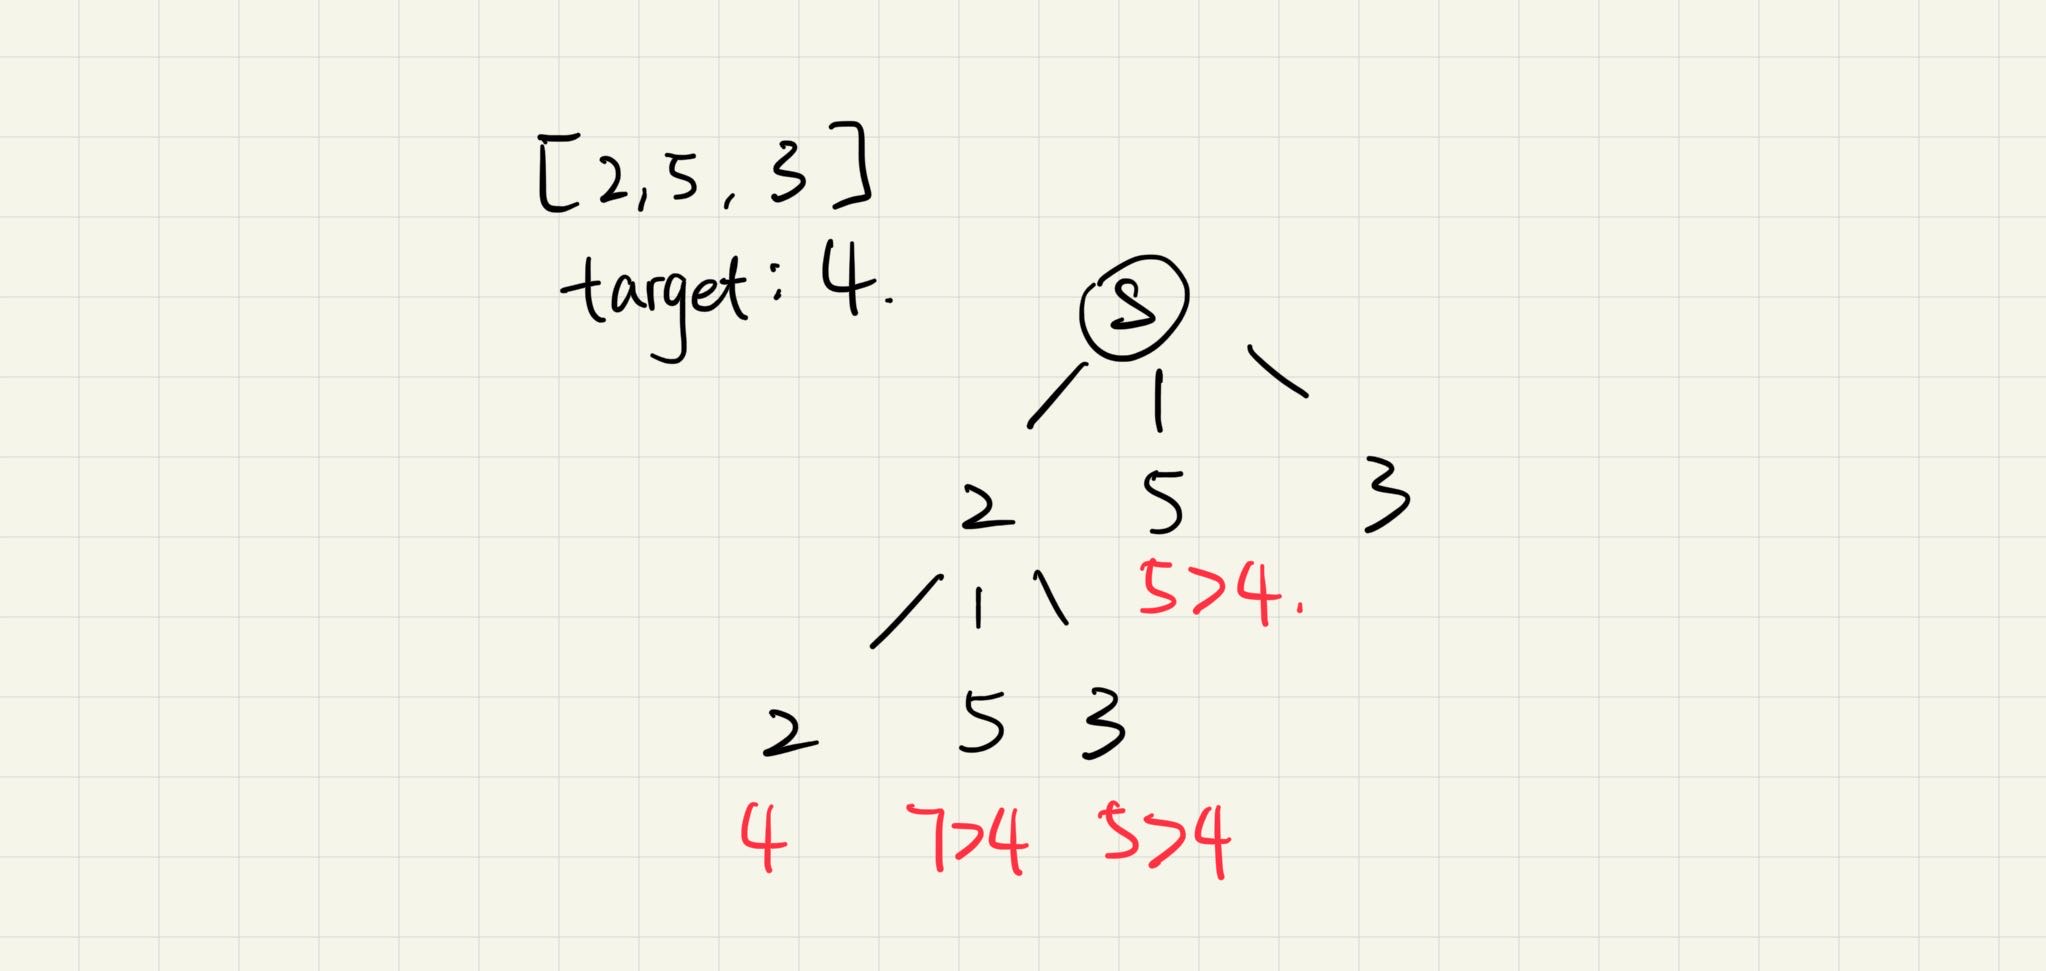 [2,5,3]
target: 4.
S
2 5 3
5>4.
2 5 3
4 7>4 5>4